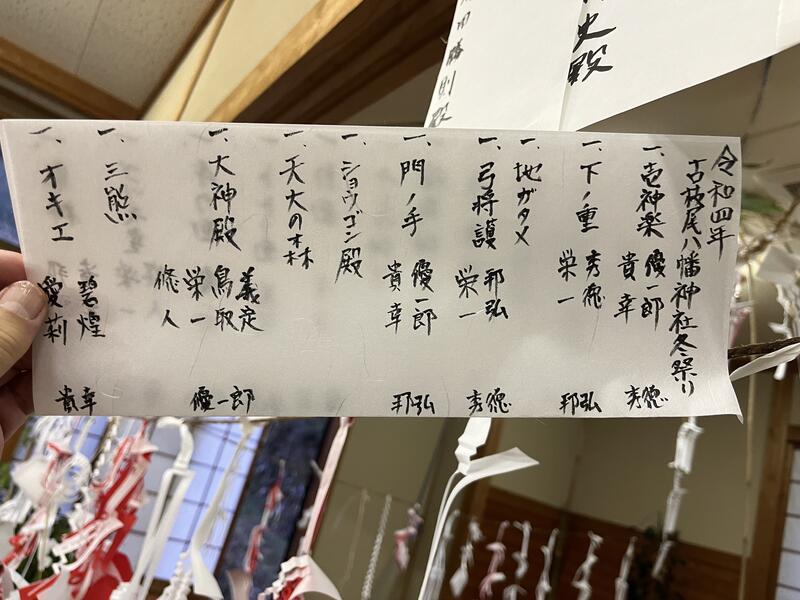 史殿
田勝則殿
令和四年
古枝尾八幡神社冬祭り
一、壱神楽
優一郎
貴幸
秀徳
一、下ノ重
秀徳
栄一
邦弘
一、地ガタメ
一、弓将護
邦弘
栄一
秀徳
一、門ノ手
優一郎
貴幸
邦弘
一、ショウゴン殿
一、天大の森
一、大神殿
義定
鳥取
栄一
修人
優一郎
一、三熊
一、オキエ
碧煌
愛莉
貴幸